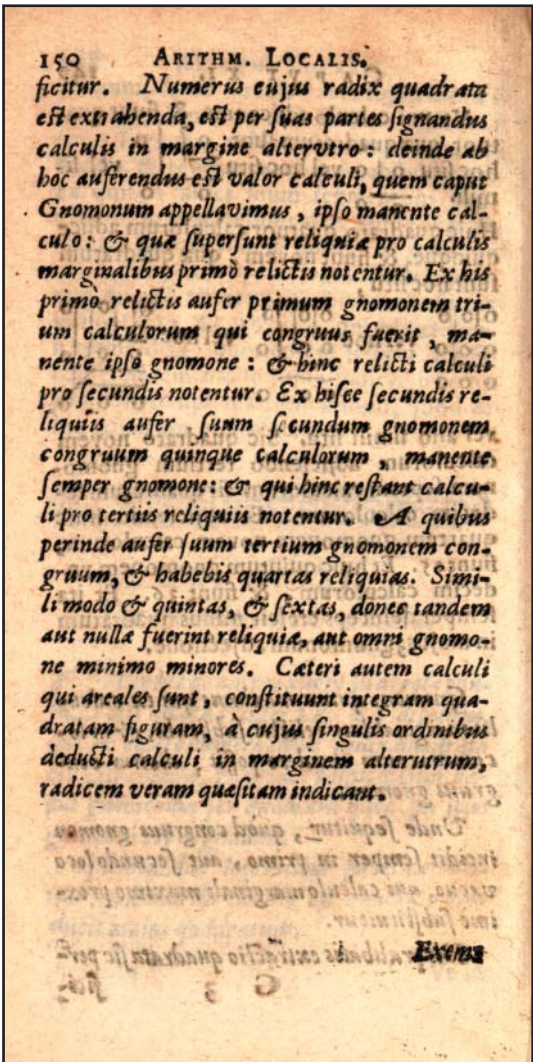 150 ARITHM. LOCALIS.
ficitur. Numerus eujus radix quadrata
est extrahenda, est per suas partes signandus
calculis in margine altervtro: deinde ab
hoc auferendus est valor calculi, quem caput
Gnomonum appellavimus, ipso manente cal-
culo: & quæ supersunt reliquiæ pro calculis
marginalibus primò relictis notentur. Ex his
primò relictis aufer primum gnomonem tri-
um calculorum qui congruus fuerit, ma-
nente ipso gnomone: & hinc relicti calculi
pro secundis notentur. Ex hisce secundis re-
liquiis aufer suum secundum gnomonem
congruum quinque calculorum, manente
semper gnomone: & qui hinc restant calcu-
li pro tertiis reliquiis notentur. A quibus
perinde aufer suum tertium gnomonem con-
gruum, & habebis quartas reliquias. Simi-
li modo & quintas, & sextas, donec tandem
aut nullæ fuerint reliquiæ, aut omni gnomo-
ne minimo minores. Cæteri autem calculi
qui areales sunt, constituunt integram qua-
dratam figuram, à cujus singulis ordinibus
deducti calculi in marginem alterutrum,
radicem veram quæsitam indicant.
Unde sequitur, quòd congruus gnomon
incidit semper in primo, aut secundo loco
Exem-